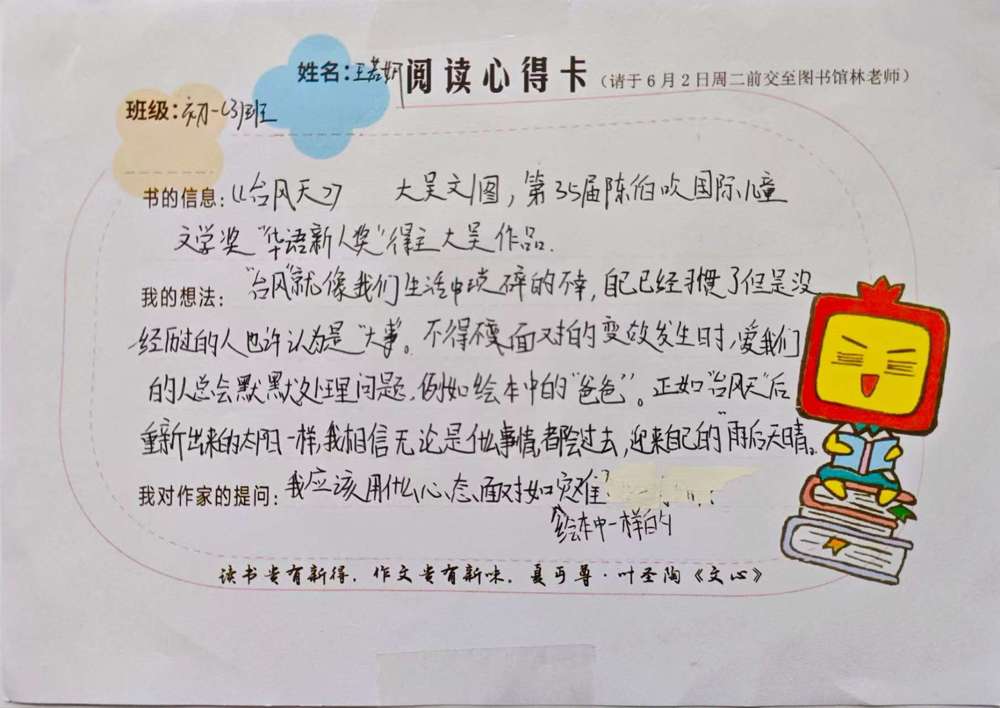 姓名：王若妍 阅读心得卡（请于6月2日周二前交至图书馆林老师）
班级：初一(3)班
书的信息：《台风天》 大吴文/图，第35届陈伯吹国际儿童
文学奖“华语新人奖”得主大吴作品.
我的想法：“台风”就像我们生活中琐碎的不幸，自己已经习惯了但是没
经历过的人也许认为是“大事”。不得不面对的变故发生时，爱我们
的人总会默默处理问题，例如绘本中的“爸爸”。正如“台风天”后
重新出来的太阳一样，我相信无论是什么事情，都会过去，迎来自己的“雨后天晴”。
我对作家的提问：我应该用什么心态面对如灾难？
绘本中一样的
读书贵有新得，作文贵有新味。夏丏尊·叶圣陶《文心》